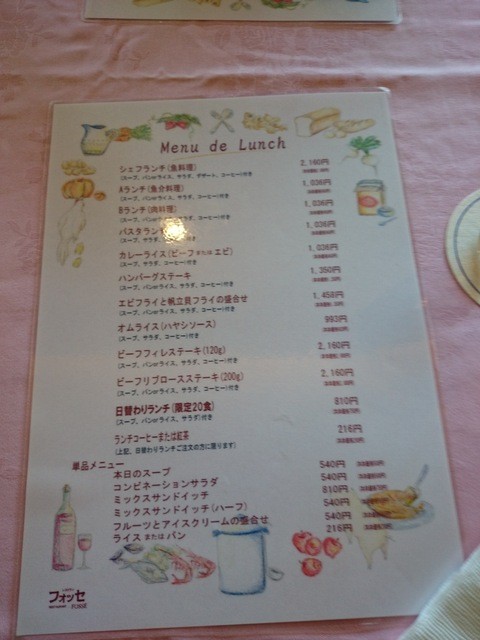 Menu de Lunch
シェフランチ(魚料理) 2,160円
(スープ、パンorライス、サラダ、デザート、コーヒー)付き
Aランチ(魚介料理) 1,036円
(スープ、パンorライス、サラダ、コーヒー)付き
Bランチ(肉料理) 1,036円
(スープ、パンorライス、サラダ、コーヒー)付き
パスタラン 1,036円
(スープ、サラダ、コーヒー)付き
カレーライス(ビーフまたはエビ) 1,036円
(スープ、サラダ、コーヒー)付き
ハンバーグステーキ 1,350円
(スープ、パンorライス、サラダ、コーヒー)付き
エビフライと帆立貝フライの盛合せ 1,458円
(スープ、パンorライス、サラダ、コーヒー)付き
オムライス(ハヤシソース) 993円
(スープ、サラダ、コーヒー)付き
ビーフフィレステーキ(120g) 2,160円
(スープ、パンorライス、サラダ、コーヒー)付き
ビーフリブロースステーキ(200g) 2,160円
(スープ、パンorライス、サラダ、コーヒー)付き
日替わりランチ(限定20食) 810円
(スープ、パンorライス、サラダ)付き
ランチコーヒーまたは紅茶 216円
(上記、日替わりランチご注文の方に限ります)
単品メニュー
本日のスープ 540円
コンビネーションサラダ 540円
ミックスサンドイッチ 810円
ミックスサンドイッチ(ハーフ) 540円
フルーツとアイスクリームの盛合せ 540円
ライス または パン 216円
フォッセ